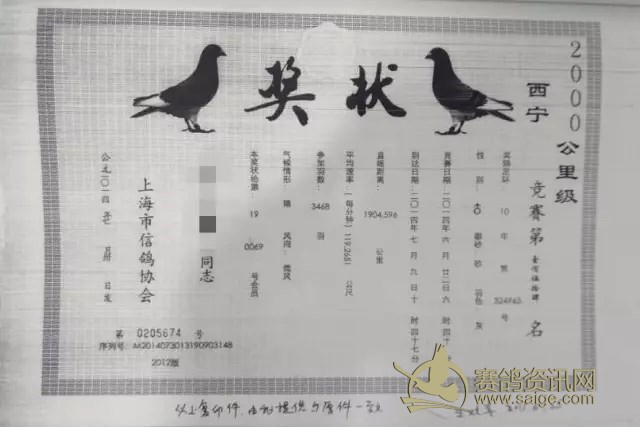 奖状
2000公里级
西宁
竞赛第 名
奖鸽足环: 10 年 第 号
性别: 眼砂: 砂 羽色: 灰
竞赛日期: 二〇一四年六月廿二日六时四十
到达日期: 二〇一四年七月九日十时四十七分
直线距离: 1904.596 公里
平均速率: (每分钟) 119.2651 公尺
参加羽数: 3468 羽
气候情形: 晴 风向: 微风
本奖状给第 19 0069 号会员
同志
上海市信鸽协会
公元二〇一四年 月 日发
第 0205674 号
序列号: A620140730131909031​48
2012版
以上复印件 由 提供与原件一致
赛鸽资讯网
www.saige.com